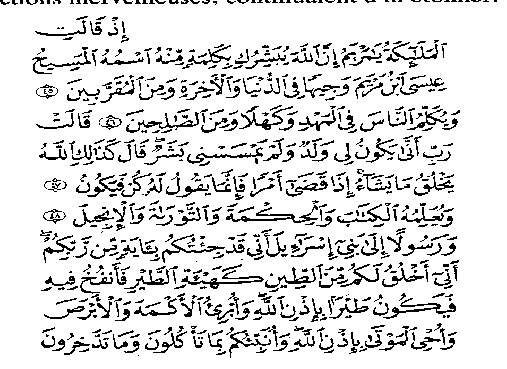 ctions merveilleuses, continuaient à m'étonner.
إِذْ قَالَتِ
الْمَلَٰٓئِكَةُ يَٰمَرْيَمُ إِنَّ اللَّهَ يُبَشِّرُكِ بِكَلِمَةٍ مِّنْهُ اسْمُهُ الْمَسِيحُ
عِيسَى ابْنُ مَرْيَمَ وَجِيهًا فِي الدُّنْيَا وَالْأَخِرَةِ وَمِنَ الْمُقَرَّبِينَ ﴿٤٥﴾
وَيُكَلِّمُ النَّاسَ فِي الْمَهْدِ وَكَهْلًا وَمِنَ الصَّٰلِحِينَ ﴿٤٦﴾ قَالَتْ
رَبِّ أَنَّىٰ يَكُونُ لِي وَلَدٌ وَلَمْ يَمْسَسْنِي بَشَرٌ ۖ قَالَ كَذَٰلِكِ اللَّهُ
يَخْلُقُ مَا يَشَآءُ ۚ إِذَا قَضَىٰٓ أَمْرًا فَإِنَّمَا يَقُولُ لَهُۥ كُن فَيَكُونُ ﴿٤٧﴾
وَيُعَلِّمُهُ الْكِتَٰبَ وَالْحِكْمَةَ وَالتَّوْرَىٰةَ وَالْإِنجِيلَ ﴿٤٨﴾
وَرَسُولًا إِلَىٰ بَنِىٓ إِسْرَٰٓءِيلَ أَنِّى قَدْ جِئْتُكُم بِـَٔايَةٍ مِّن رَّبِّكُمْ ۖ
أَنِّىٓ أَخْلُقُ لَكُم مِّنَ الطِّينِ كَهَيْـَٔةِ الطَّيْرِ فَأَنفُخُ فِيهِ
فَيَكُونُ طَيْرًا بِإِذْنِ اللَّهِ ۖ وَأُبْرِئُ الْأَكْمَهَ وَالْأَبْرَصَ
وَأُحْىِ الْمَوْتَىٰ بِإِذْنِ اللَّهِ ۖ وَأُنَبِّئُكُم بِمَا تَأْكُلُونَ وَمَا تَدَّخِرُونَ